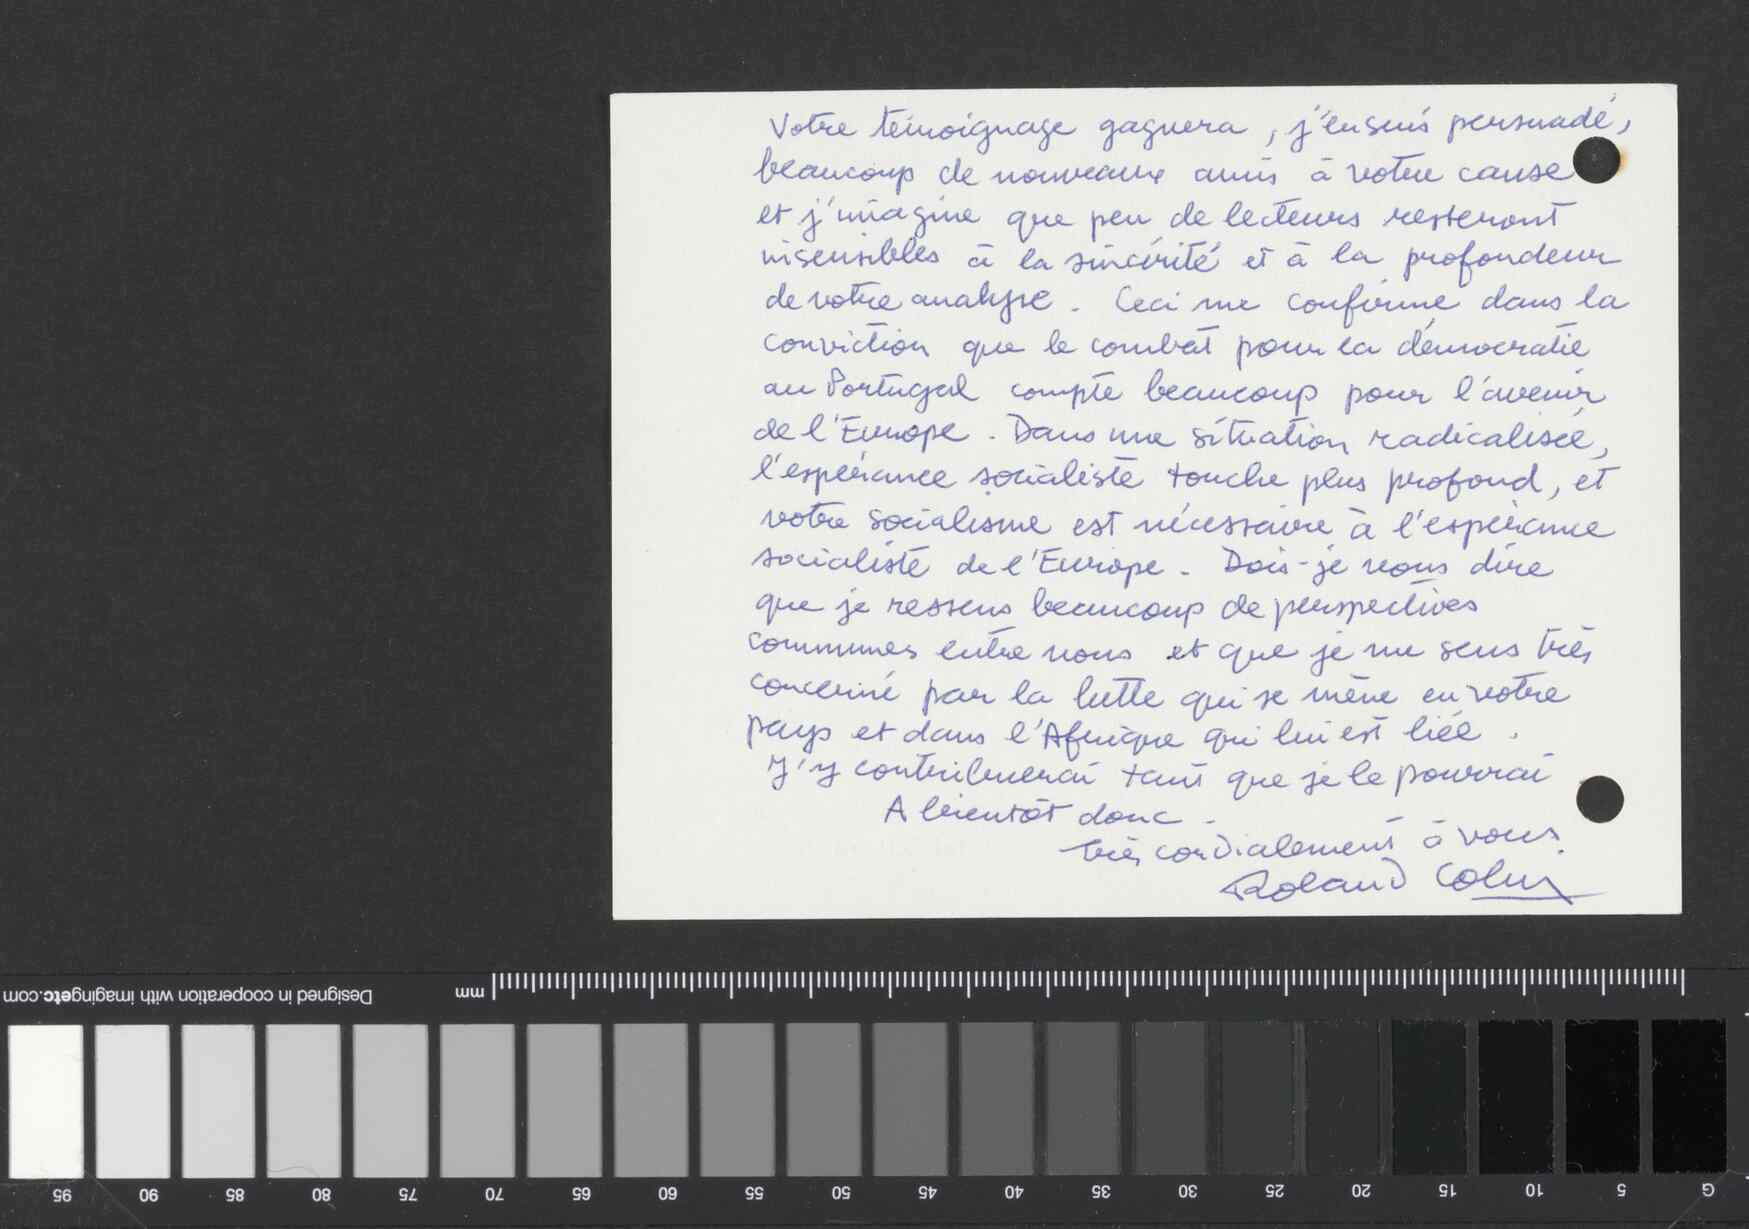 Votre témoignage gagnera, j'en suis persuadé,
beaucoup de nouveaux amis à votre cause
et j'imagine que peu de lecteurs resteront
insensibles à la sincérité et à la profondeur
de votre analyse. Ceci me confirme dans la
conviction que le combat pour la démocratie
au Portugal compte beaucoup pour l'avenir
de l'Europe. Dans une situation radicalisée,
l'espérance socialiste touche plus profond, et
votre socialisme est nécessaire à l'espérance
socialiste de l'Europe. Dois-je vous dire
que je ressens beaucoup de perspectives
communes entre nous et que je me sens très
concerné par la lutte qui se mène en votre
pays et dans l'Afrique qui lui est liée.
J'y contribuerai tant que je le pourrai
A bientôt donc.
Très cordialement à vous.
Roland Colin
Designed in cooperation with imagingetc.com mm
95 90 85 80 75 70 65 60 55 50 45 40 35 30 25 20 15 10 5 G